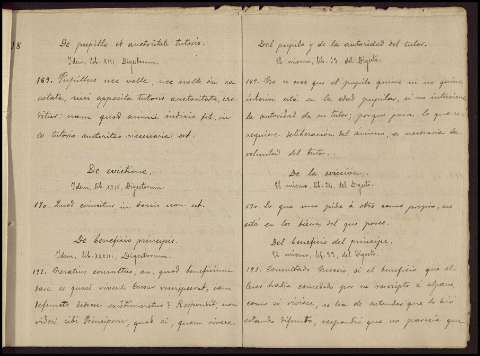 18
De pupillo et auctoritate tutoris.
Idem, lib. XIII, Digestorum.
189. Pupillus nec velle nec nolle in ea
aetate, nisi apposita tutoris auctoritate, cre
ditur: nam quod animi judicio fit, in
eo tutoris auctoritas necessaria est.
De evictione.
Idem, lib. XVII, Digestorum.
190. Quod evincitur, in bonis non est.
De beneficio principis.
Idem, lib. XXXIII, Digestorum.
191. Neratius consultus, an, quod beneficium
dare se quasi viventi Caesar rescripserat, jam
defuncto dedisse existimaretur? Respondit, non
videri sibi Principem, quod ei, quem vivere
Del pupilo y de la autoridad del tutor.
El mismo, lib. 13, del Digesto.
189. No se cree que el pupilo quiera ni no quiera
está en la edad pupilar, si no interviene
la autoridad de su tutor; porque para lo que se
requiere deliberacion del animo, es necesaria la
voluntad del tutor.
De la eviccion.
El mismo, lib. del Digesto.
190. Lo que uno pide á otro como propio, no
está en los bienes del que posee.
Del beneficio del principe.
El mismo, lib. 33, del Digesto.
191. Consultado Neracio si el beneficio que el
Cesar habia concedido por su rescripto á alguno,
como si viviese, se ha de entender que lo hizo
estando difunto, respondió que no parecia que